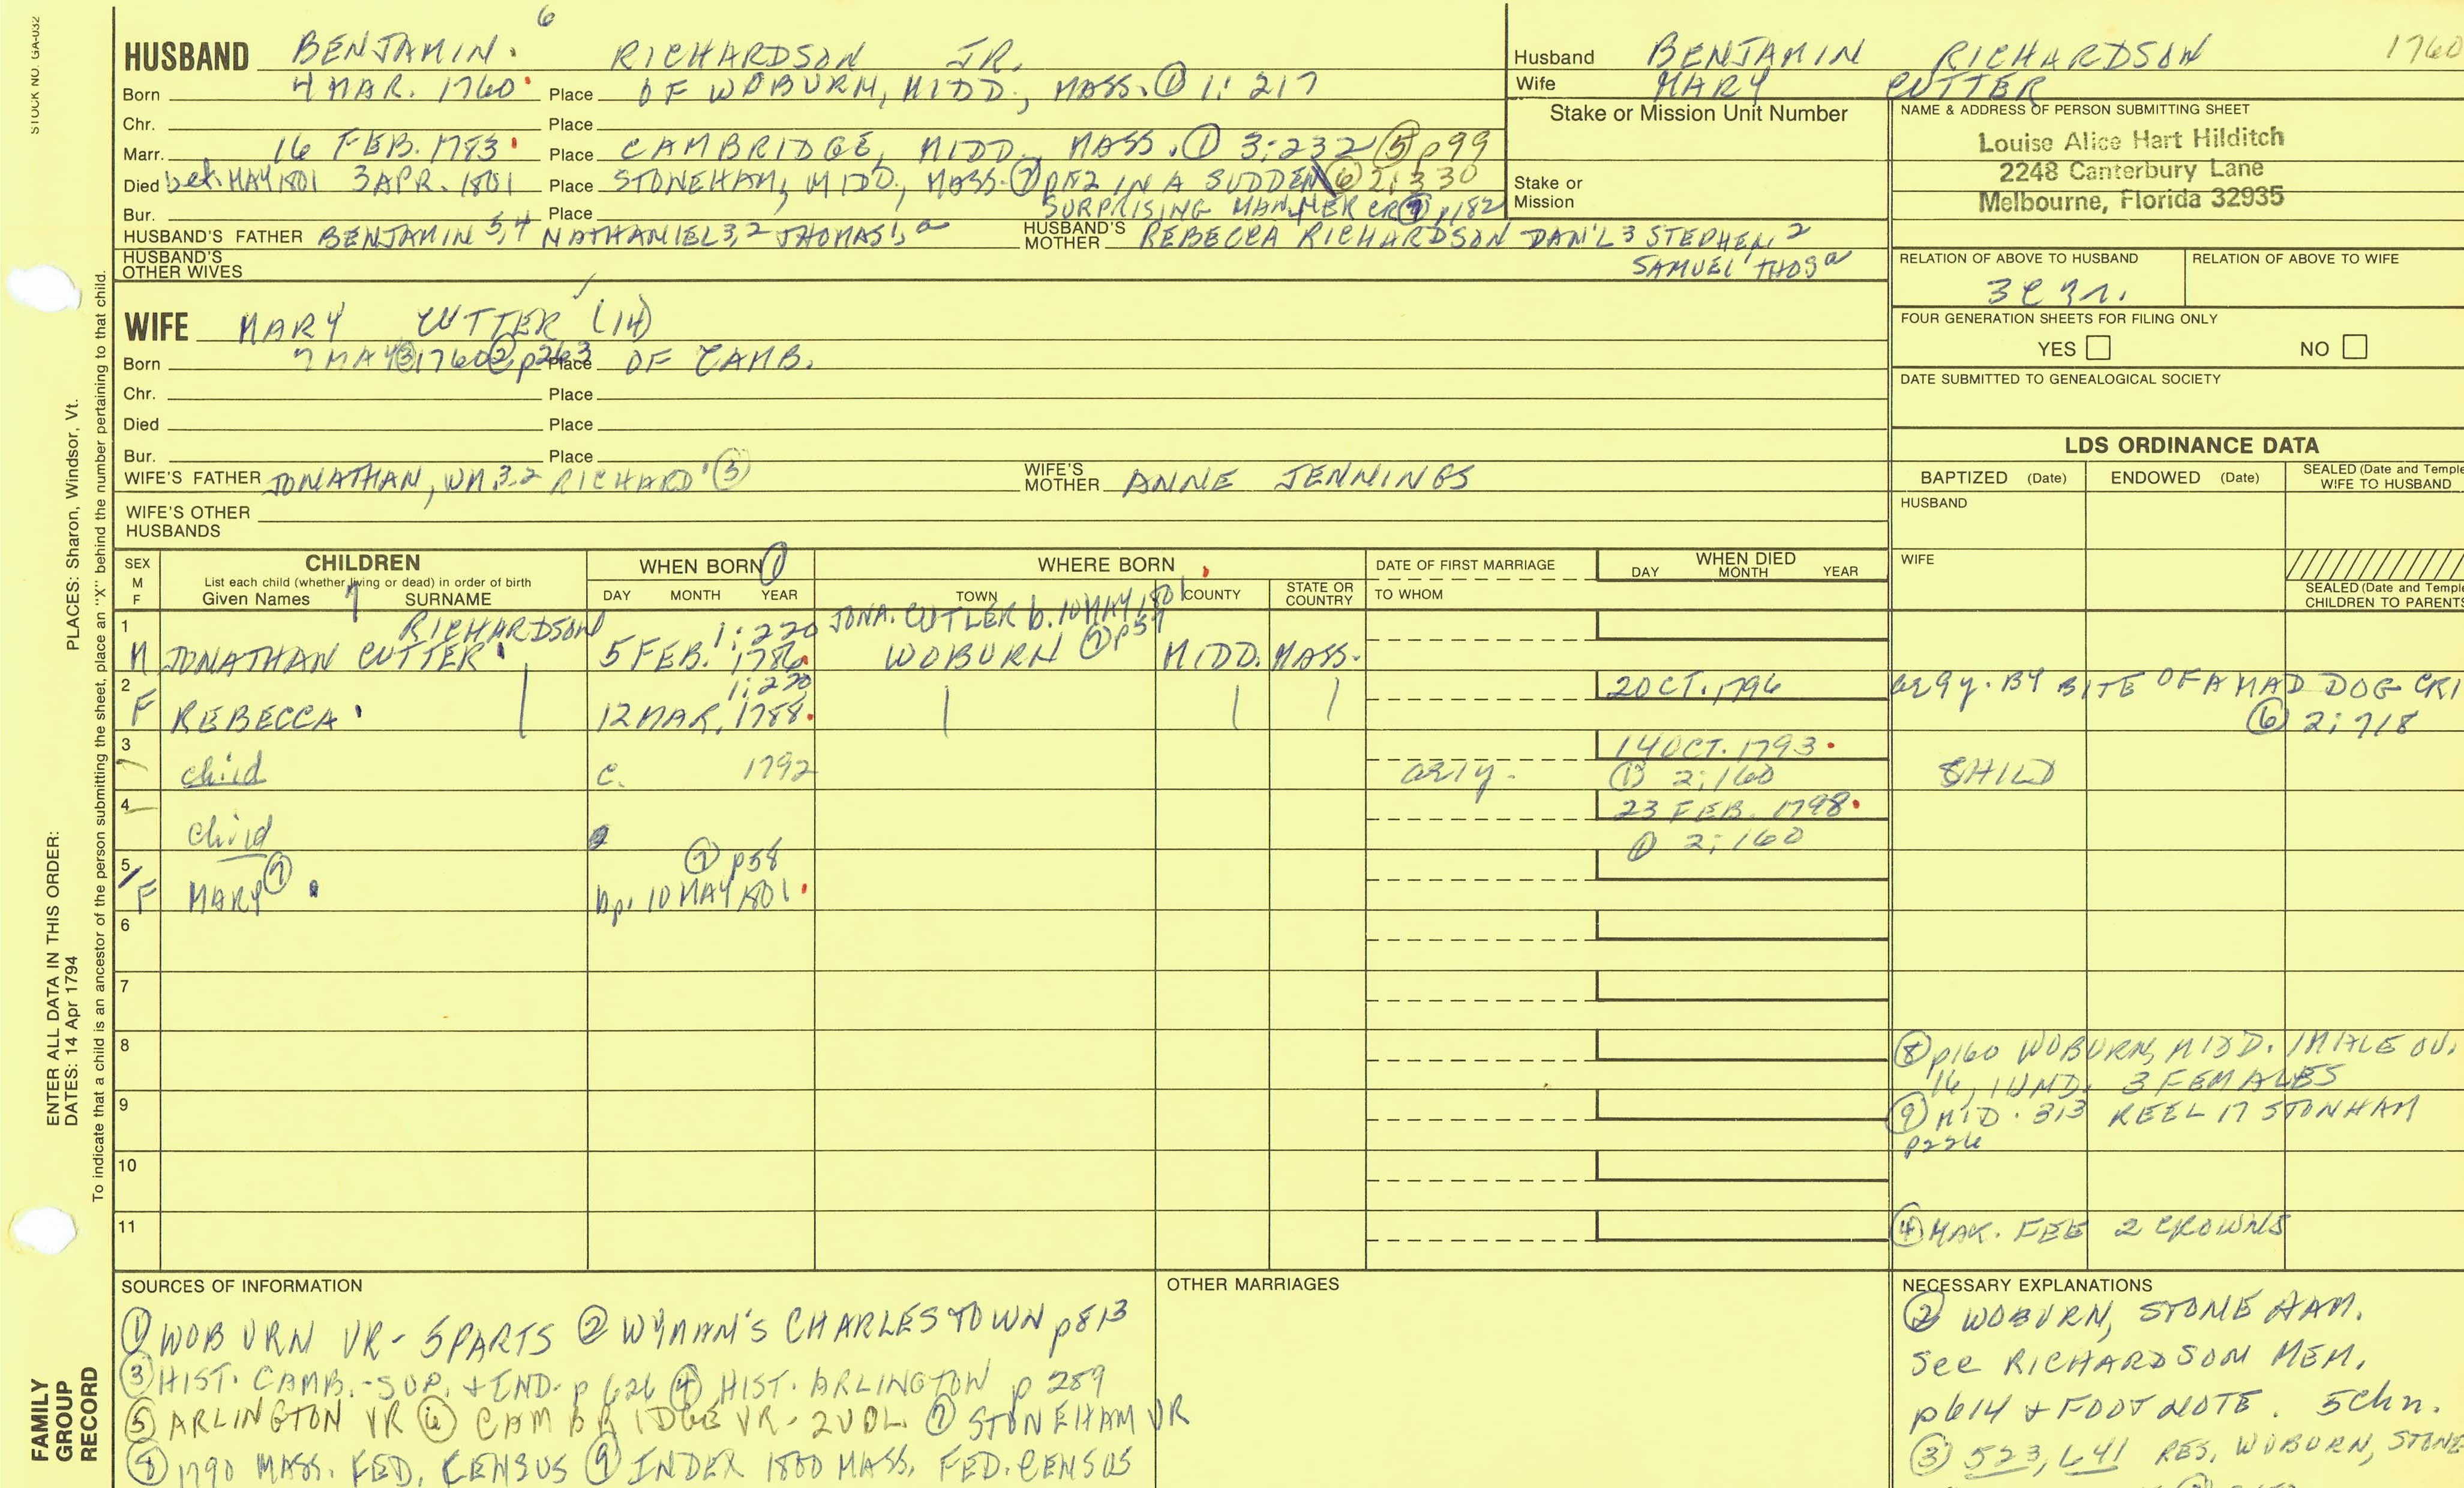 STOCK NO. GA-032
6
HUSBAND BENJAMIN. RICHARDSON JR.
Born 4 MAR. 1760 Place OF WOBURN, MIDD., MASS. ① 1:217
Chr. Place
Marr. 16 FEB. 1783 Place CAMBRIDGE, MIDD., MASS. ① 3:232 ⑤ p99
Died bet. MAY 1801 3 APR. 1801 Place STONEHAM, MIDD., MASS. ⑦ IN A SUDDEN ⑥ 2:330
SURPRISING MANNER CR1 ⑦ p182
Bur. Place
HUSBAND'S FATHER BENJAMIN 5,4 NATHANIEL 3,2 THOMAS 1, a HUSBAND'S MOTHER REBECCA RICHARDSON DAN'L 3 STEPHEN 2
SAMUEL 1 THOS a
HUSBAND'S OTHER WIVES
WIFE MARY CUTTER (14)
Born 7 MAY ③ 1760 ② p263 Place OF CAMB.
Chr. Place
Died Place
Bur. Place
WIFE'S FATHER JONATHAN, WM 3,2 RICHARD 1 ③ WIFE'S MOTHER ANNE JENNINGS
WIFE'S OTHER HUSBANDS
Husband BENJAMIN RICHARDSON 1760
Wife MARY CUTTER
Stake or Mission Unit Number
Stake or Mission
NAME & ADDRESS OF PERSON SUBMITTING SHEET
Louise Alice Hart Hilditch
2248 Canterbury Lane
Melbourne, Florida 32935
RELATION OF ABOVE TO HUSBAND RELATION OF ABOVE TO WIFE
FOUR GENERATION SHEETS FOR FILING ONLY
YES NO
DATE SUBMITTED TO GENEALOGICAL SOCIETY
LDS ORDINANCE DATA
BAPTIZED (Date) ENDOWED (Date) SEALED (Date and Temple
WIFE TO HUSBAND
HUSBAND
WIFE
SEALED (Date and Temple
CHILDREN TO PARENTS
SEX M F CHILDREN WHEN BORN ① WHERE BORN DATE OF FIRST MARRIAGE WHEN DIED
List each child (whether living or dead) in order of birth
Given Names SURNAME DAY MONTH YEAR TOWN COUNTY STATE OR COUNTRY TO WHOM DAY MONTH YEAR
1 RICHARDSON 1:220 JONA. CUTLER b. 10 MAY 1801
M JONATHAN CUTTER 5 FEB. 1786 WOBURN ⑦ p57 MIDD. MASS.
2 1:220 2 OCT. 1796 ae 9 y. BY BITE OF A MAD DOG CR1
F REBECCA 12 MAR. 1788 ⑥ 2:718
3 14 OCT. 1793
child c. 1792 ae 1 y. ① 2:160 CHILD
4 23 FEB. 1798
child ① 2:160
5 ⑦ p58
F MARY ⑦ bp. 10 MAY 1801
6
7
8 ⑧ p160 WOBURN, MIDD. 1 MALE OV.
16, 1 UND. 3 FEMALES
9 ⑨ MID. 313 REEL 17 STONHAM
p226
10
11 ④ MAR. FEE 2 CROWNS
SOURCES OF INFORMATION
① WOBURN VR - 5 PARTS ② WYMAN'S CHARLESTOWN p813
③ HIST. CAMB. - SUP. + IND. p 626 ④ HIST. ARLINGTON p 289
⑤ ARLINGTON VR ⑥ CAMBRIDGE VR - 2 VOL. ⑦ STONEHAM VR
⑧ 1790 MASS. FED. CENSUS ⑨ INDEX 1800 MASS. FED. CENSUS
OTHER MARRIAGES
NECESSARY EXPLANATIONS
② WOBURN, STONEHAM.
See RICHARDSON MEM.
p614 + FOOTNOTE. 5 chn.
③ 523, 641 RES. WOBURN, STONE
PLACES: Sharon, Windsor, Vt.
To indicate that a child is an ancestor of the person submitting the sheet, place an "X" behind the number pertaining to that child.
ENTER ALL DATA IN THIS ORDER:
DATES: 14 Apr 1794
FAMILY
GROUP
RECORD